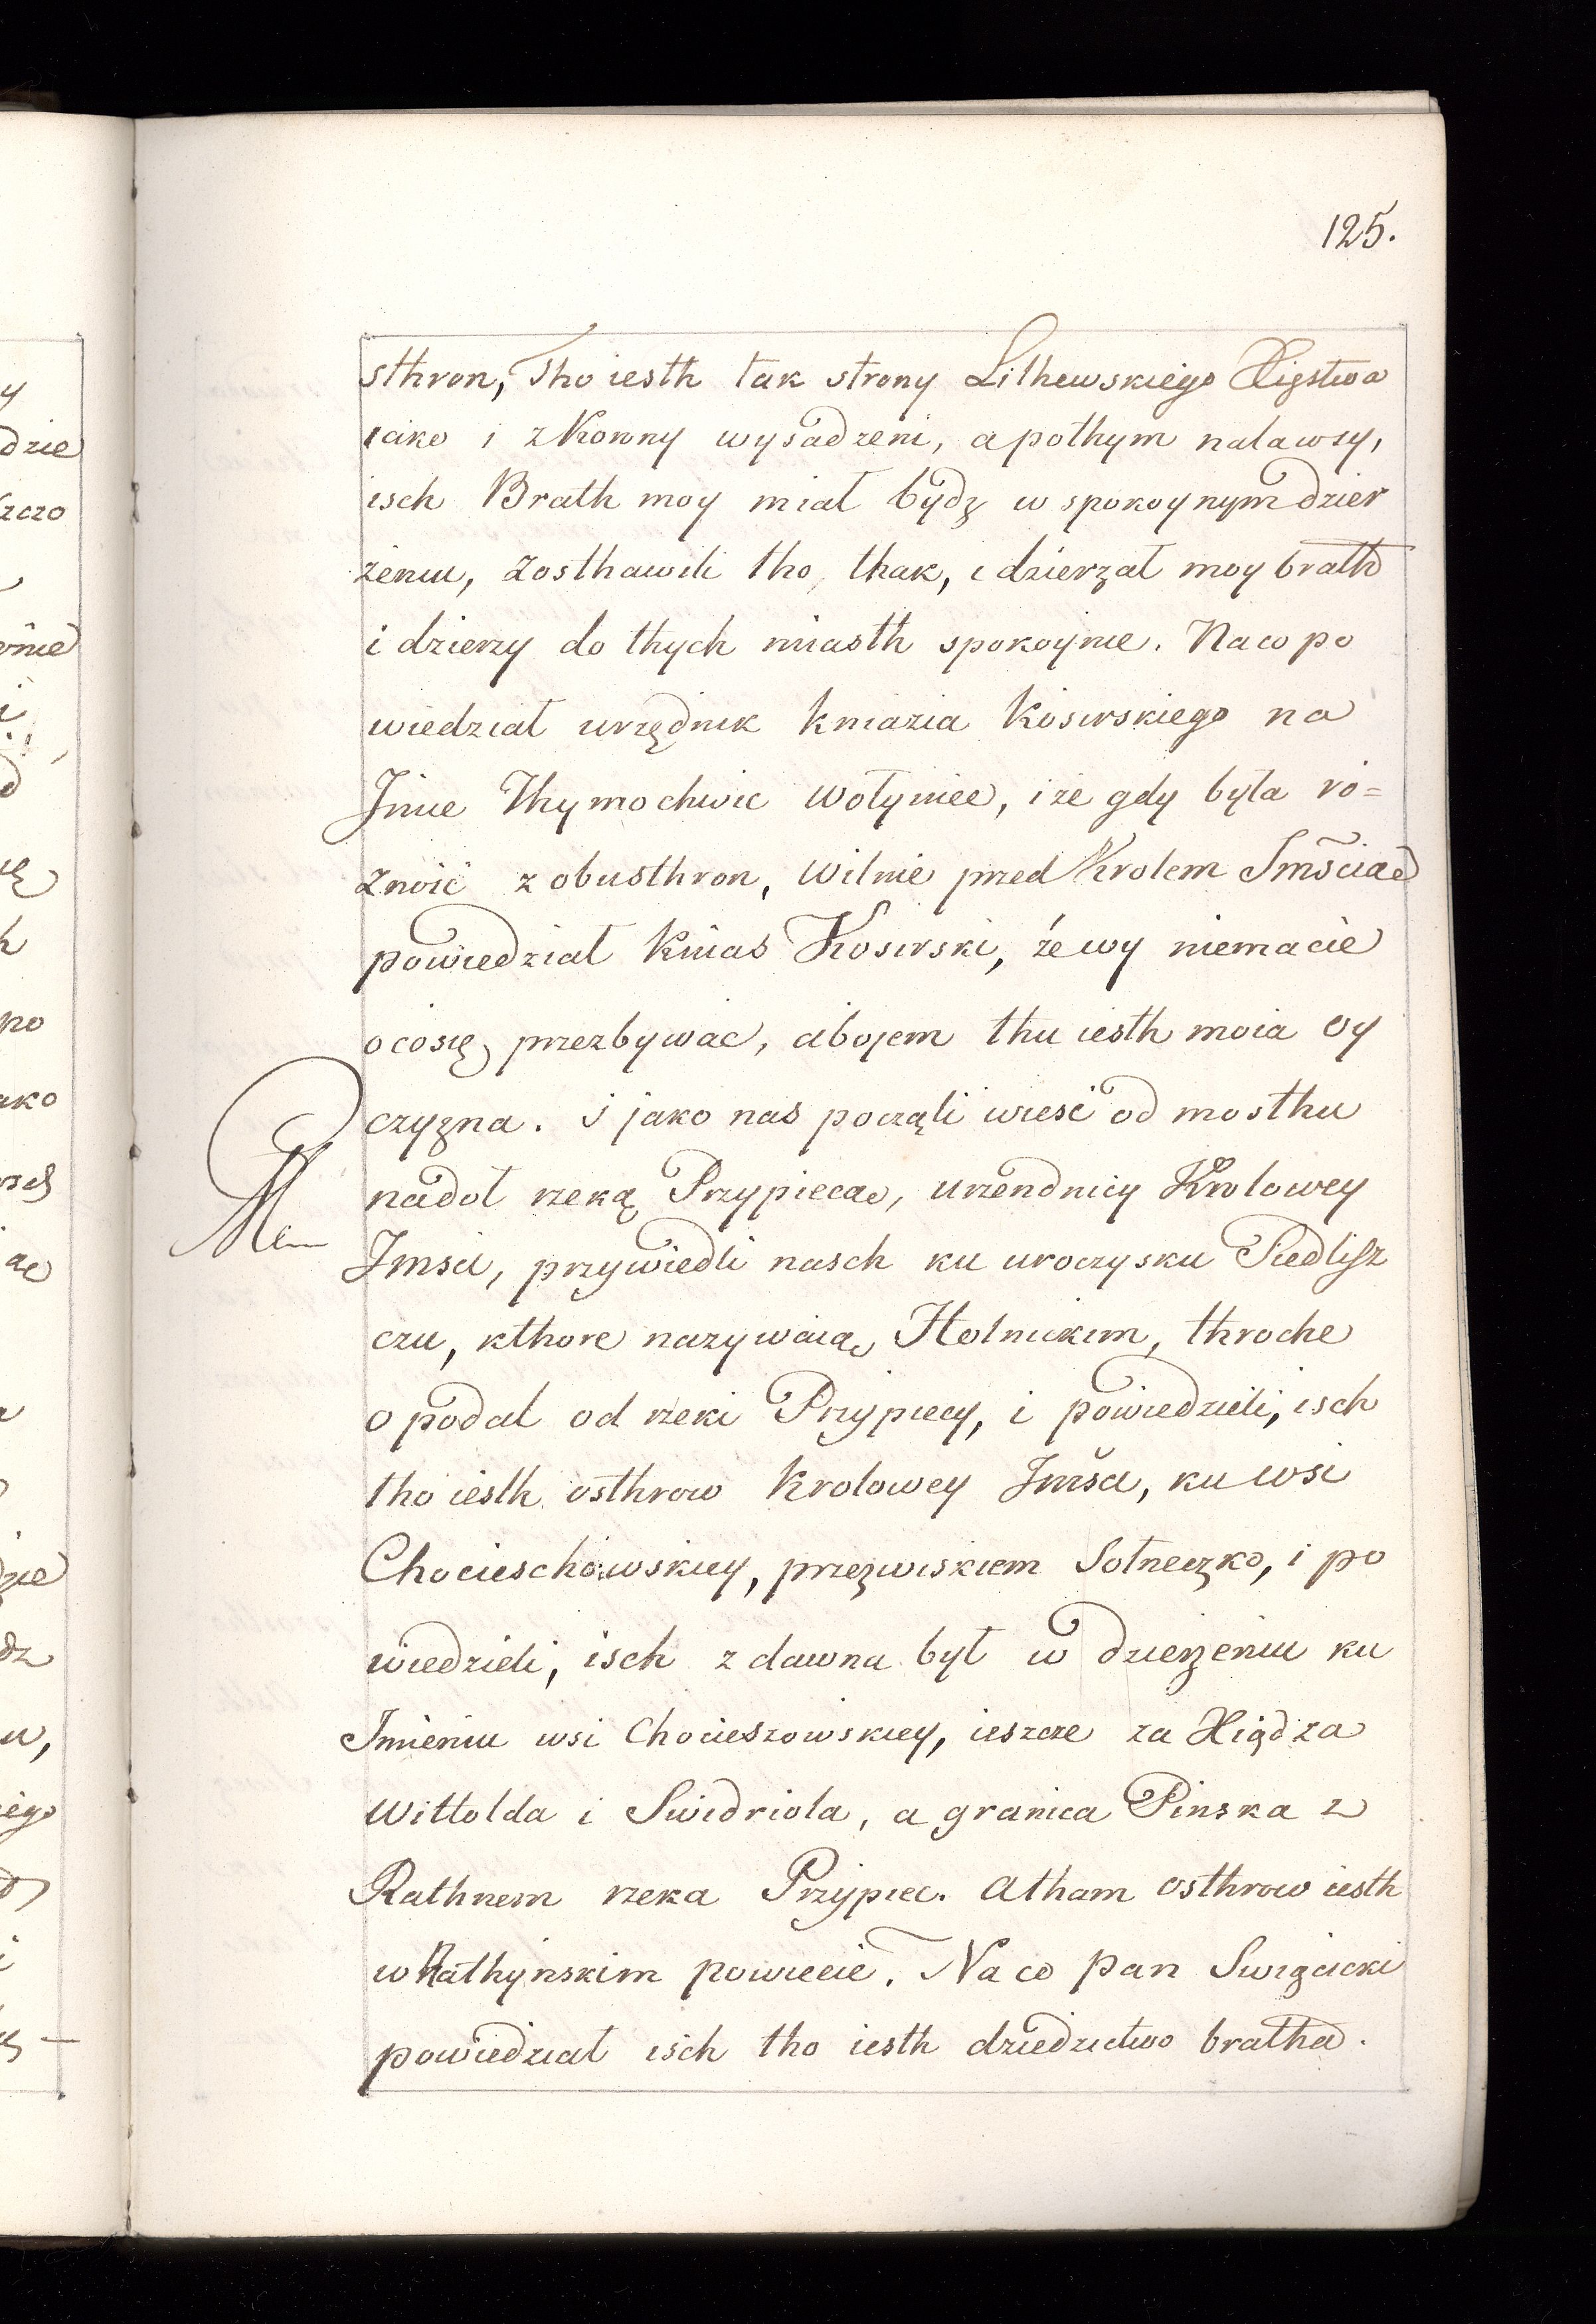 125.
sthron, Tho iesth tak strony Lithewskiego Xięstwa
iako i z Korony wysadzeni, a pothym nalawsy,
isch Brath moy miał bydz w spokoynym dzier
żeniu, zosthawili tho, thak, i dzierzał moy brath
i dzierzy do thych miasth spokoynie. Na co po
wiedział urzędnik kniazia Kosirskiego na
Imie Thymochwie Wołyniec, iże gdy była ro=
zność z obusthron, Wilnie przed Krolem Jmścią
powiedział Knias Kosirski, że wy niemacie
o co się przezbywać, abojem thu iesth moia oy
czyzna. i jako nas począli wieść od mosthu
nadoł rzeką Przypiecą, urzendnicy Krolowey
Jmsci, przywiedli nasch ku uroczysku Siedlisz
czu, kthore nazywaią Holnickim, throche
opodal od rzeki Przypiecy, i powiedzieli, isch
tho iesth osthrow Krolowey Jmści, ku wsi
Chocieschowskiey, przezwiskiem Sotneczko, i po
wiedzieli, isch z dawna był w dzierzeniu ku
Imieniu wsi Chocieszowskiey, ieszcze za Xiędza
Wittolda i Swidriola, a granica Pinska z
Rathnem rzeka Przypiec. A tham osthrow iesth
w Rathynskim powiecie. Na co Pan Swięcicki
powiedział isch tho iesth dziedzictwo bratha.